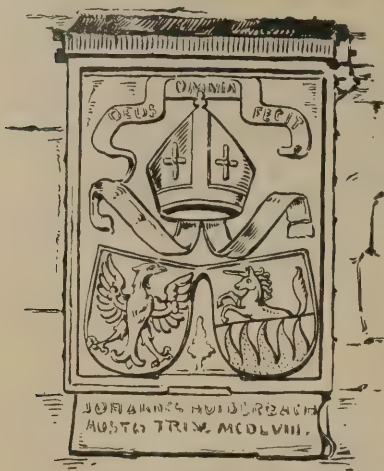 DEUS OMNIA FECIT
JOHANNES HUIDERBACH
AUSTO TRIX. MCDLVIII.